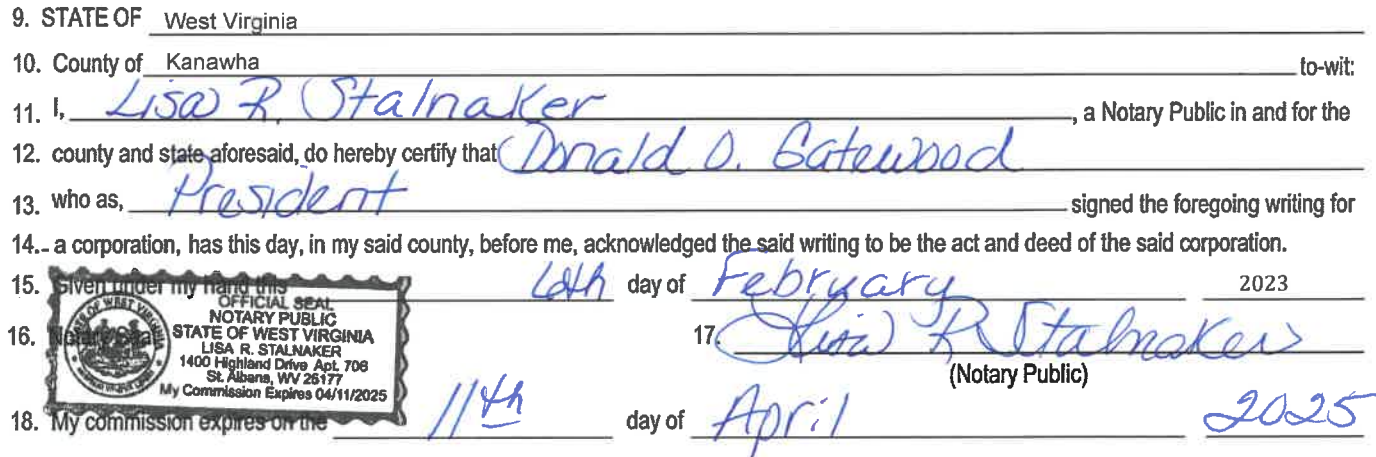 9. STATE OF West Virginia
10. County of Kanawha to-wit:
11. I, Lisa R. Stalnaker, a Notary Public in and for the
12. county and state aforesaid, do hereby certify that Donald O. Gatewood
13. who as, President signed the foregoing writing for
14. a corporation, has this day, in my said county, before me, acknowledged the said writing to be the act and deed of the said corporation.
15. Given under my hand this 6th day of February 2023
16. Notary Seal
OFFICIAL SEAL
NOTARY PUBLIC
STATE OF WEST VIRGINIA
LISA R. STALNAKER
1400 Highland Drive Apt. 708
St. Albans, WV 25177
My Commission Expires 04/11/2025
17. Lisa R Stalnaker
(Notary Public)
18. My commission expires on the 11th day of April 2025